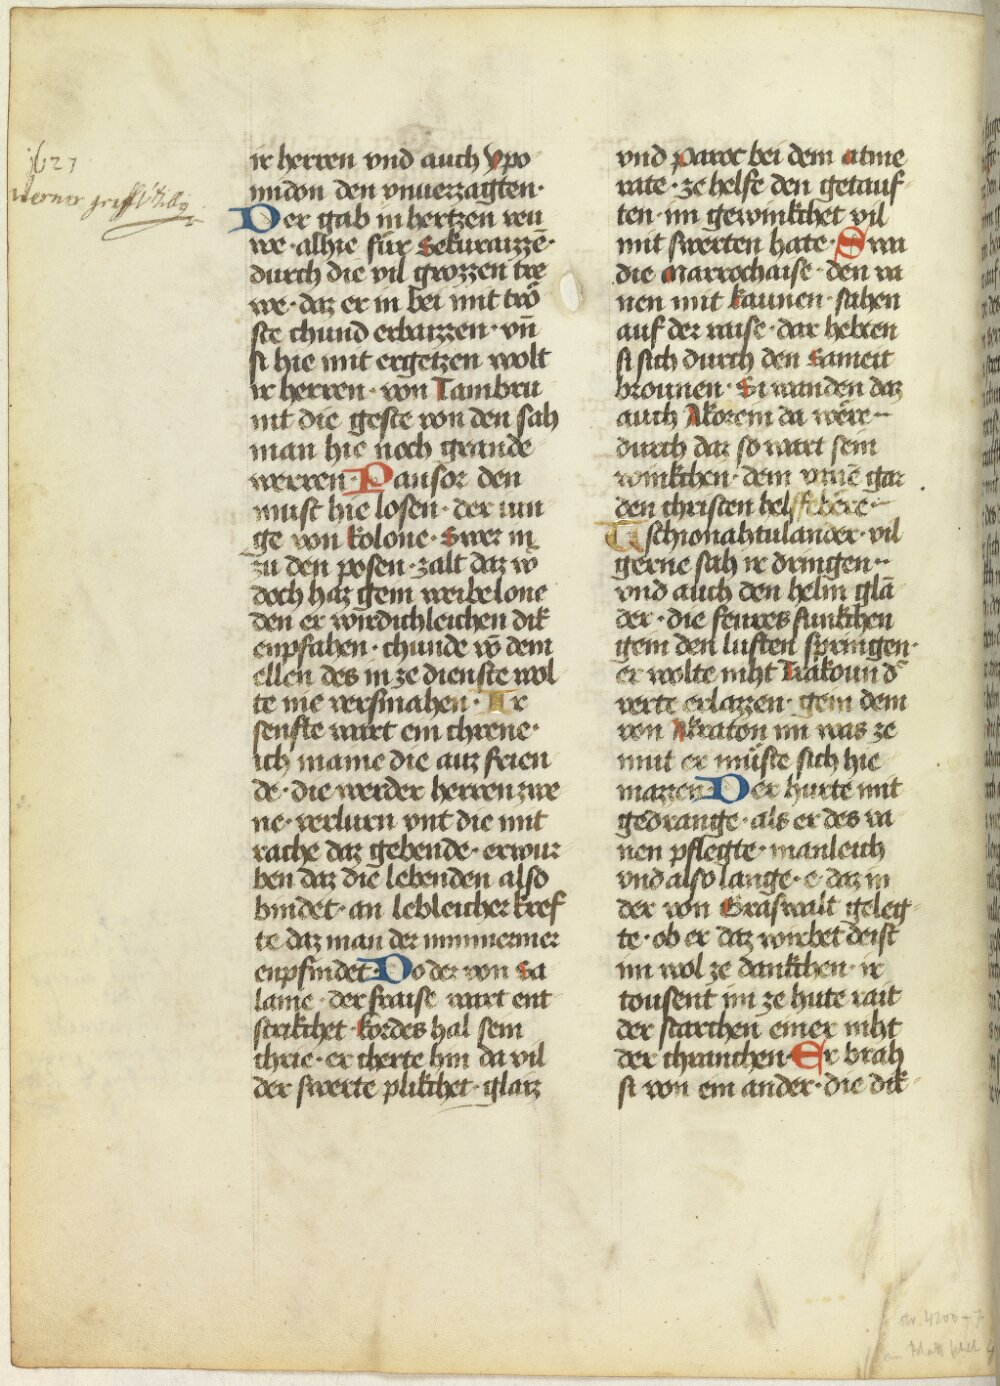 1627
Werner
ir herren vnd auch ypo
midon den vnuerzagten·
Der gab in hertzen reu
we· alhie für Sekuraizzē·
durch die vil grozzen tre
we· daz er in bei mit trö
ste chund erbaizzen· vn̄
si hie mit ergetzen wolt
ir herren· von Tambru
nit die geste von den sah
man hie noch grande
werren· Pausor den
must hie losen· der iun
ge von kolone· Swer in
zu den posen· zalt daz w
doch haz gem weibe lone
den er wirdichleichen dik
enpfahen· chunde vō dem
ellen des in ze dienste wol
te nie versmahen· Ir
senfte wart ein chrene·
ich maine die auz frien
de· die werder herren zwe
ne· verlurn vnt die mit
rache daz gebende· erwur
ben daz die lebenden also
bindet· an lebleicher kref
te daz man der nimmermer
enpfindet· Do der von Sa
lanie· der fraise wart ent
strikchet· kordes hal sein
chrie· er cherte hin da vil
der swerte plikchet· glaiz
vnd Paroc bei dem atme
rate· ze helfe den getauf-
ten· im gewinkchet vil
mit swerten hate· Swa
die marrochaise· den va
nen mit kaunen· sahen
auf der raise· dar hebten
si sich durch den Sameit
brounen· Si wanden daz
auch Akorein da wëre··
durch daz so wart sein
winkchen· dem vanē gar
den christen helffebëre·
Tschionahtulander· vil
gerne sah ir dringen··
vnd auch den helm glā
der· die feures funkchen
gem den luften springen·
er wolte niht Trakoun d
verte erlazzen· gein dem
von Akraton im was ze
mut er müste sich hie
mazzen· Der hurte mit
gedrange· als er des va
nen pflegte· manleich
vnd also lange· e· daz in
der von Graswalt geleg-
te· ob er daz wirbet deist
im wol ze dankchen· ir
tousent im ze hute rait
der starchen einer niht
der chranchen· Er brah
si von ein ander· die dik-
str. 4200-7